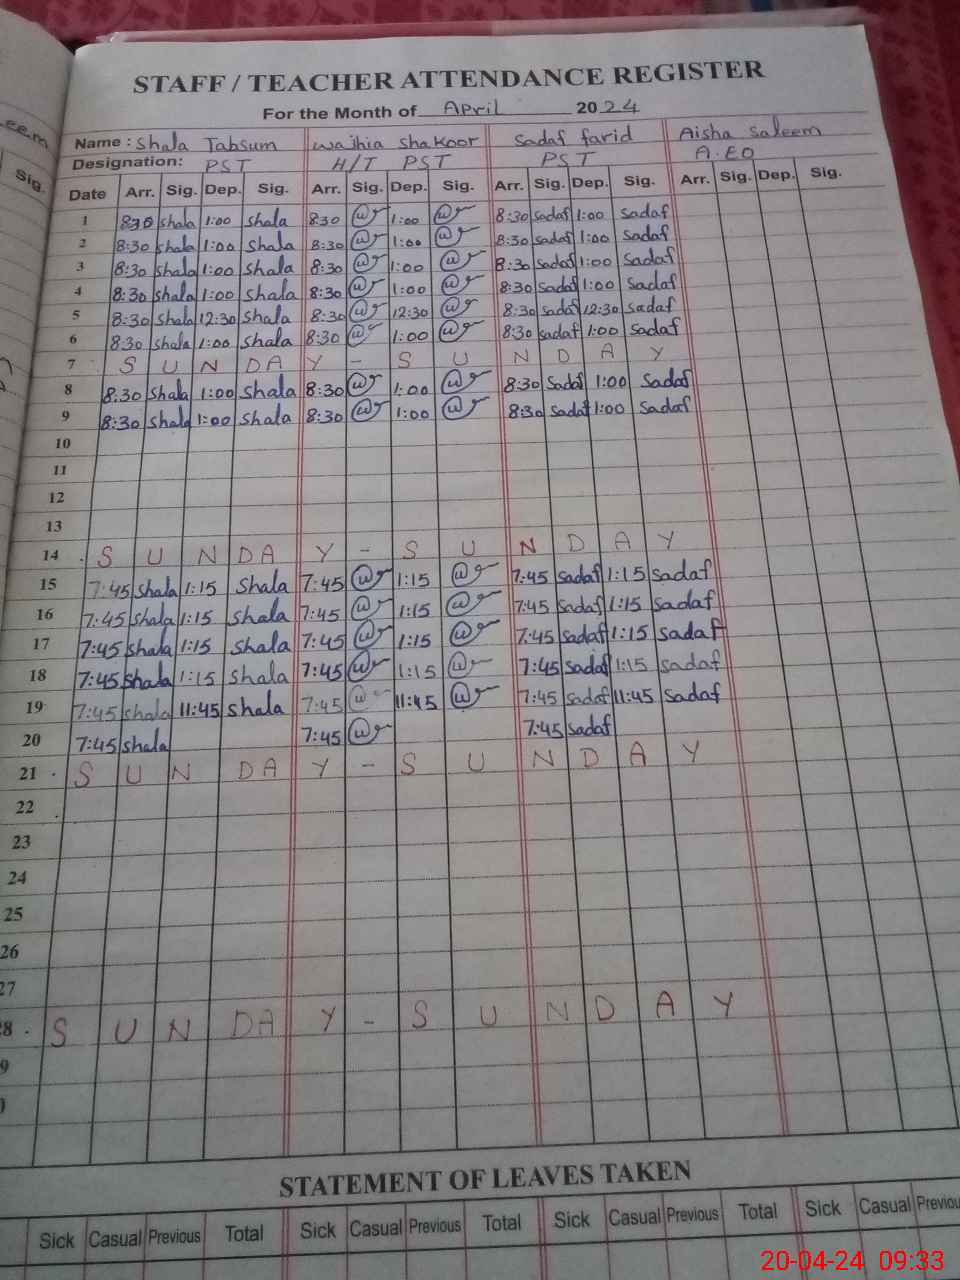 STAFF / TEACHER ATTENDANCE REGISTER
For the Month of April 2024
Name : Shala Tabsum Wajhia Shakoor Sadaf farid Aisha Saleem
Designation: PST H/T PST PST A.EO
Date Arr. Sig. Dep. Sig. Arr. Sig. Dep. Sig. Arr. Sig. Dep. Sig. Arr. Sig. Dep. Sig.
1 8:30 Shala 1:00 Shala 8:30 1:00 8:30 Sadaf 1:00 Sadaf
2 8:30 Shala 1:00 Shala 8:30 1:00 8:30 Sadaf 1:00 Sadaf
3 8:30 Shala 1:00 Shala 8:30 1:00 8:30 Sadaf 1:00 Sadaf
4 8:30 Shala 1:00 Shala 8:30 1:00 8:30 Sadaf 1:00 Sadaf
5 8:30 Shala 12:30 Shala 8:30 12:30 8:30 Sadaf 12:30 Sadaf
6 8:30 Shala 1:00 Shala 8:30 1:00 8:30 Sadaf 1:00 Sadaf
7 S U N D A Y - S U N D A Y
8 8:30 Shala 1:00 Shala 8:30 1:00 8:30 Sadaf 1:00 Sadaf
9 8:30 Shala 1:00 Shala 8:30 1:00 8:30 Sadaf 1:00 Sadaf
10
11
12
13
14 S U N D A Y - S U N D A Y
15 7:45 Shala 1:15 Shala 7:45 1:15 7:45 Sadaf 1:15 Sadaf
16 7:45 Shala 1:15 Shala 7:45 1:15 7:45 Sadaf 1:15 Sadaf
17 7:45 Shala 1:15 Shala 7:45 1:15 7:45 Sadaf 1:15 Sadaf
18 7:45 Shala 1:15 Shala 7:45 1:15 7:45 Sadaf 1:15 Sadaf
19 7:45 Shala 11:45 Shala 7:45 11:45 7:45 Sadaf 11:45 Sadaf
20 7:45 Shala 7:45 7:45 Sadaf
21 S U N D A Y - S U N D A Y
22
23
24
25
26
27
28 S U N D A Y - S U N D A Y
STATEMENT OF LEAVES TAKEN
Sick Casual Previous Total Sick Casual Previous Total Sick Casual Previous Total Sick Casual
20-04-24 09:33